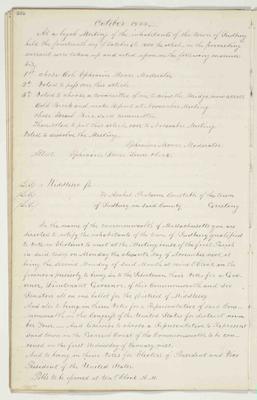 October 1844.
At a legal Meeting of the inhabitants of the town of Sudbury
held the fourteenth day of October A.D. 1844 the articles in the preceding
warrant were taken up and acted upon in the following manner
viz.
1st chose Col. Ephraim Moore Moderator
2d Voted to pass over this article.
3d Voted to choose a committee of one to view the bridge and cause
and make report at November Meeting
chose Israel committee
Then Voted to put this article over to November Meeting.
Voted to dissolve the Meeting.
Ephraim Moore Moderator
Attest. Town Clerk.
Middlesex ss.
To Constable of the town
of Sudbury in said County Greeting
In the name of the commonwealth of Massachusetts you are
directed to notify the inhabitants of the town of Sudbury qualified
to vote in Elections to meet at the Meeting house of the first Parish
in said town on Monday the eleventh day of November next, it
being the second Monday of said Month at nine o'clock in the
forenoon precisely to bring in to the Selectmen their Votes for a Gov-
ernor, Lieutenant Governor of this Commonwealth and
Senators all on one ballot for the district of Middlesex
And also to bring in their Votes for a Representative of said Com-
monwealth in the Congress of the United States for district num-
ber Four. And likewise to choose a Representative to Represent
said town in the General Court of the Commonwealth to be con-
vened on the first Wednesday of January next.
And to bring in their Votes for Electors of President and Vice
President of the United States
Polls to be opened at ten o'clock A.M.